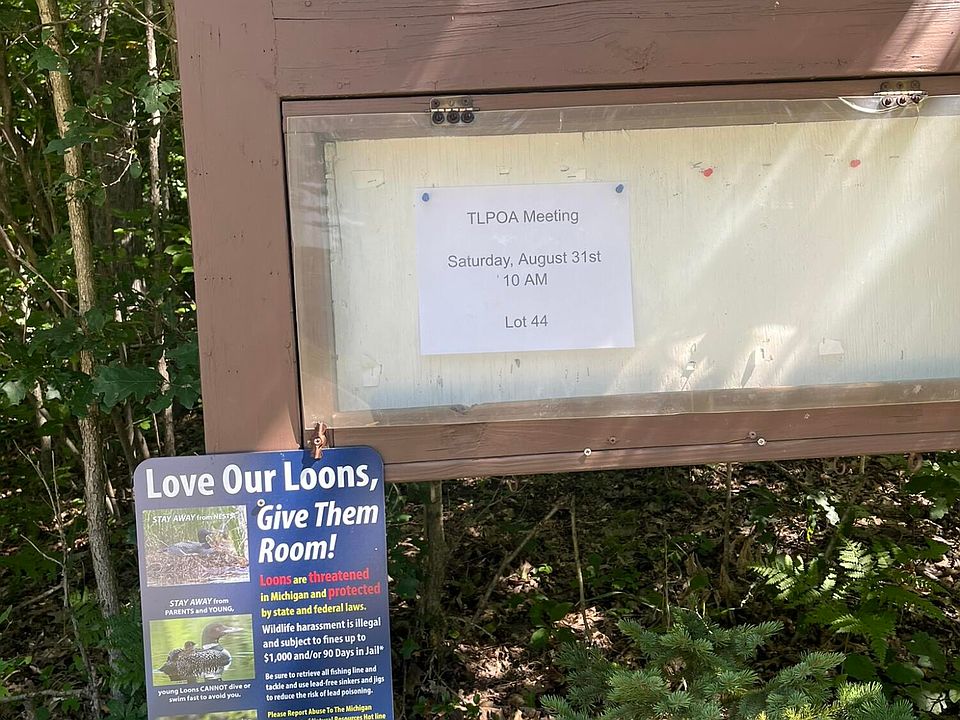 TLPOA Meeting
Saturday, August 31st
10 AM
Lot 44
Love Our Loons,
Give Them
Room!
STAY AWAY from NESTS,
Loons are threatened
in Michigan and protected
by state and federal laws.
STAY AWAY from
PARENTS and YOUNG,
Wildlife harassment is illegal
and subject to fines up to
$1,000 and/or 90 Days in Jail*
young Loons CANNOT dive or
swim fast to avoid you.
Be sure to retrieve all fishing line and
tackle and use lead-free sinkers and jigs
to reduce the risk of lead poisoning.
Please Report Abuse To The Michigan
Natural Resources Hot line